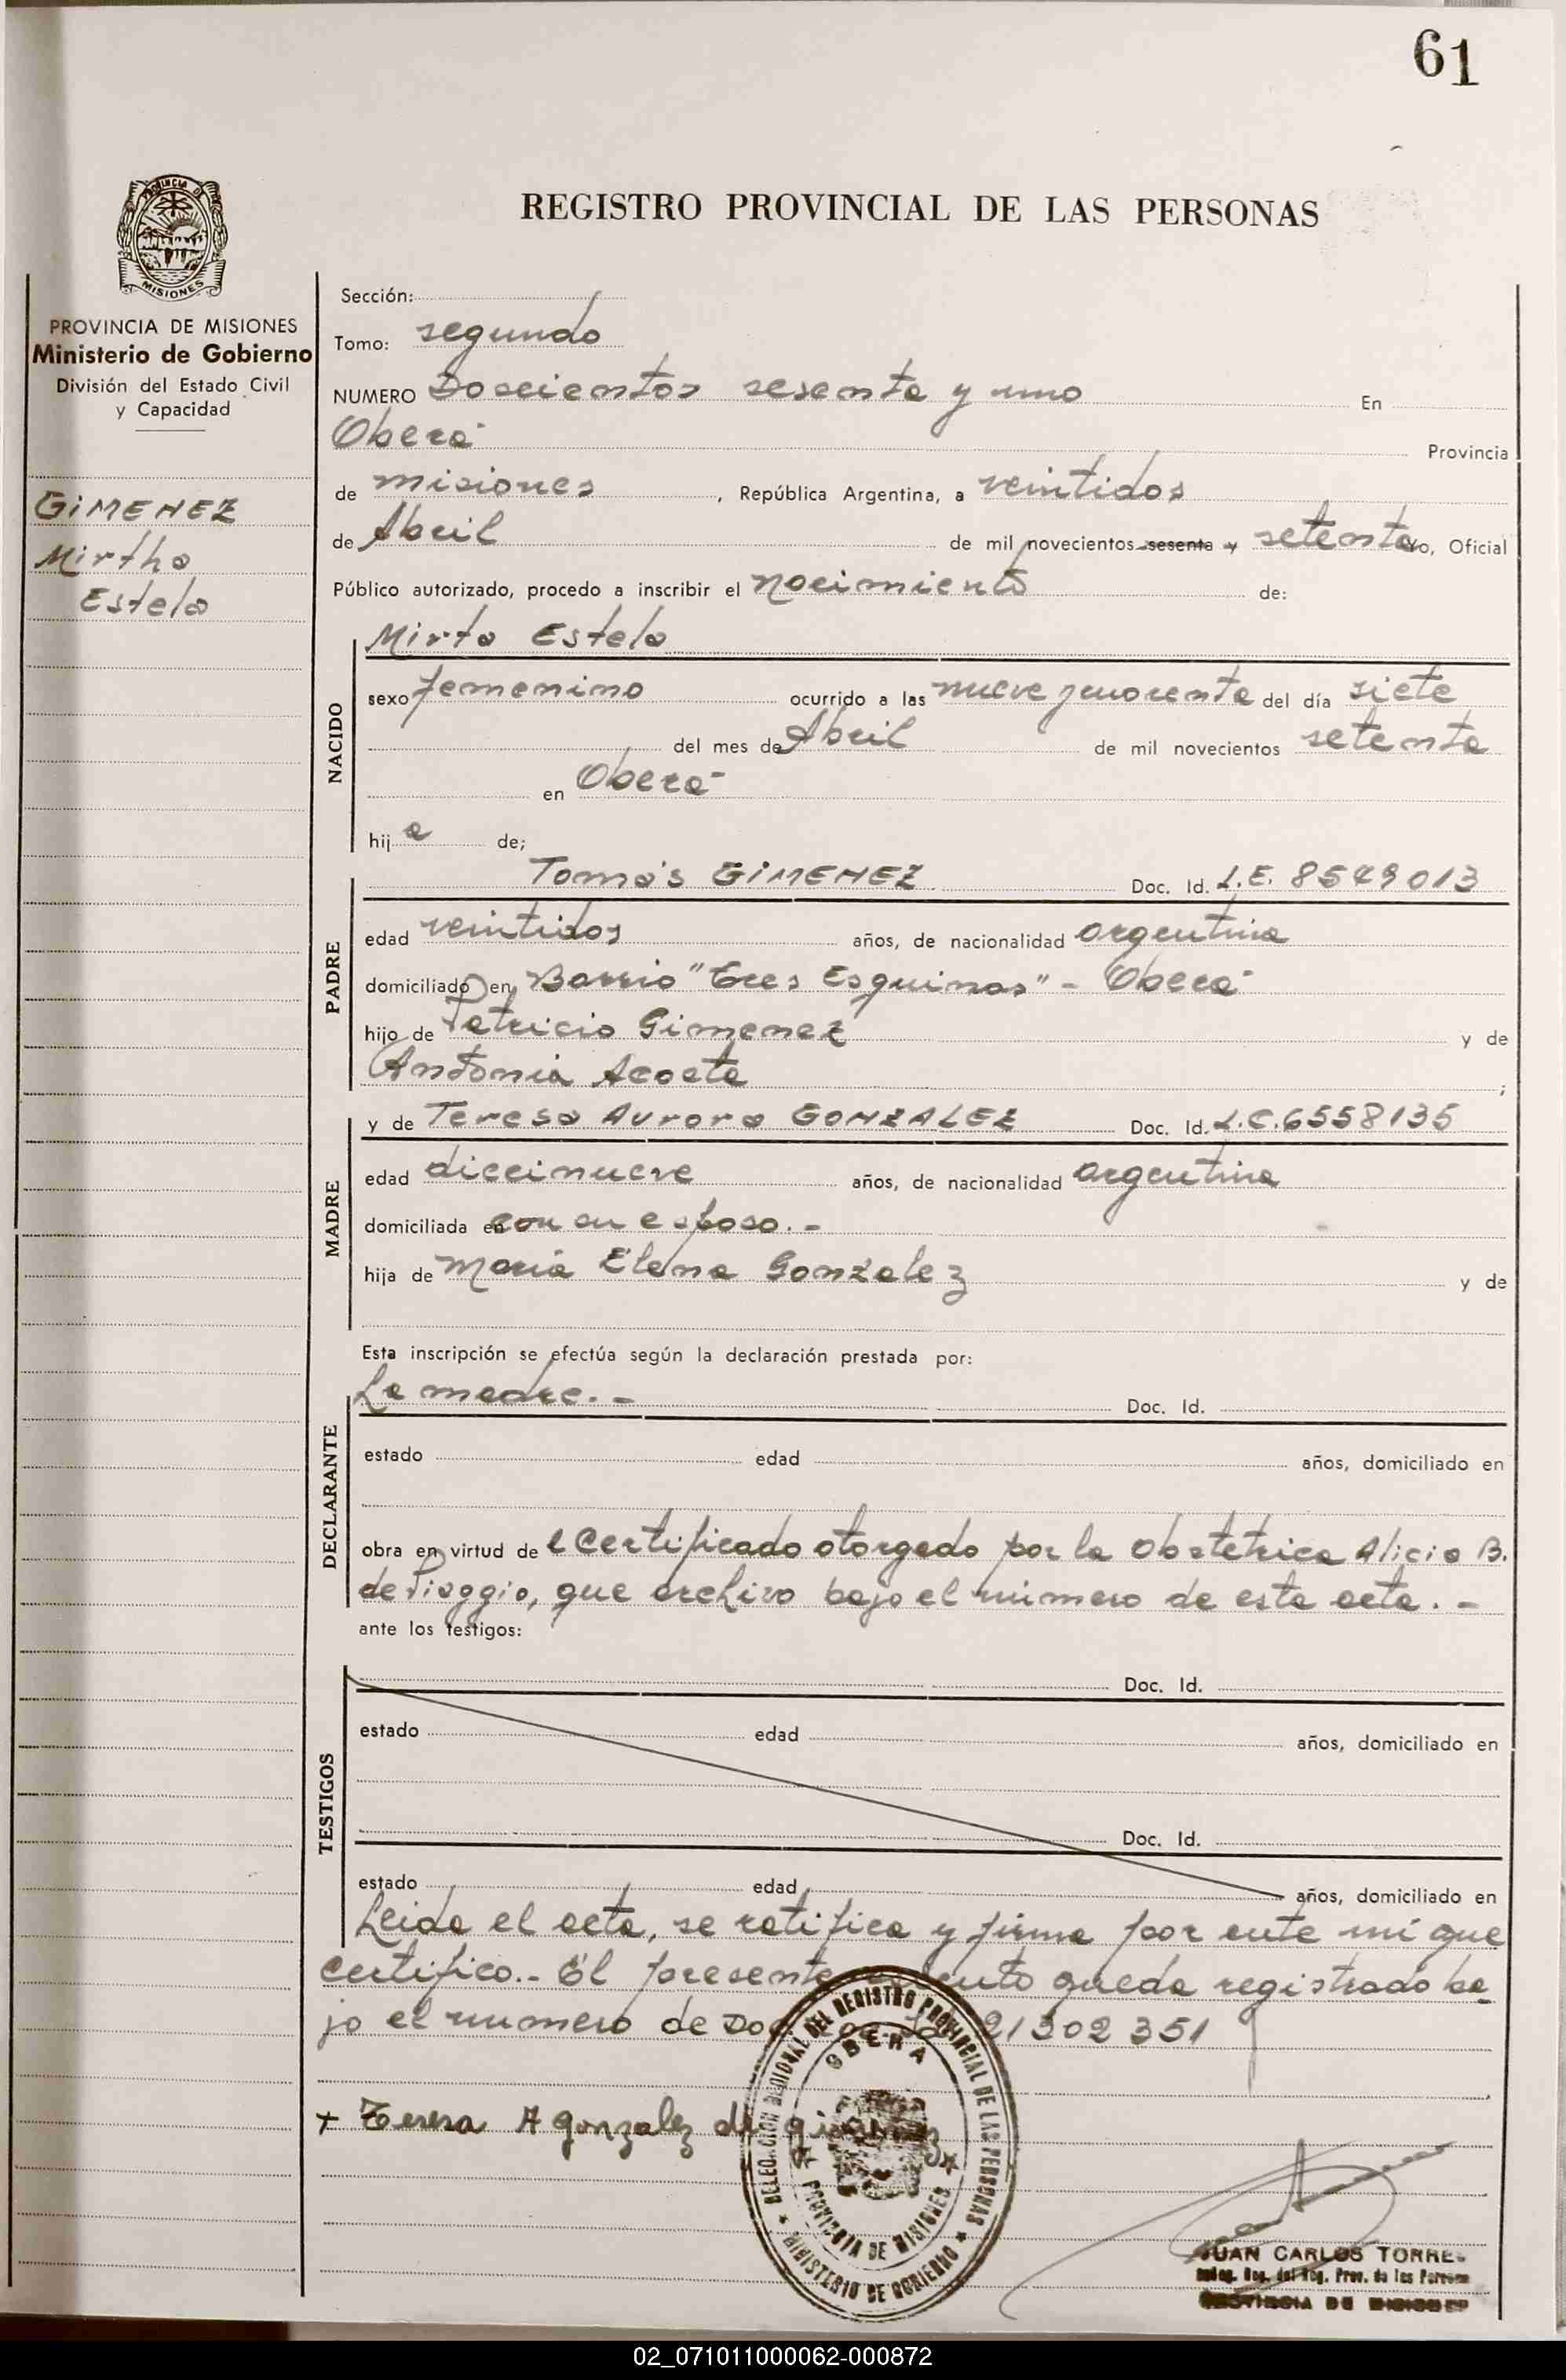 61
REGISTRO PROVINCIAL DE LAS PERSONAS
PROVINCIA DE
MISIONES
PROVINCIA DE MISIONES
Ministerio de Gobierno
División del Estado Civil
y Capacidad
GIMENEZ
Mirtha
Estela
Sección:
Tomo: segundo
NUMERO Doscientos sesenta y uno En
Oberá Provincia
de misiones, República Argentina, a veintidos
de Abril de mil novecientos sesenta y setenta yo, Oficial
Público autorizado, procedo a inscribir el nacimiento de:
NACIDO
Mirta Estela
sexo femenino ocurrido a las nueve y cuarenta del día siete
del mes de Abril de mil novecientos setenta
en Oberá
hij a de;
PADRE
Tomás GIMENEZ Doc. Id. L.E. 8549013
edad veintidos años, de nacionalidad argentina
domiciliado en Barrio "Tres Esquinas" - Oberá
hijo de Patricio Gimenez y de
Antonia Acosta ;
MADRE
y de Teresa Aurora GONZALEZ Doc. Id. L.C. 6558135
edad diecinueve años, de nacionalidad argentina
domiciliada en con su esposo. -
hija de María Elena Gonzalez y de
Esta inscripción se efectúa según la declaración prestada por:
DECLARANTE
La madre. - Doc. Id.
estado edad años, domiciliado en
obra en virtud de l Certificado otorgado por la Obstetrica Alicia B.
de Piaggio, que archivo bajo el número de esta acta. -
ante los testigos:
TESTIGOS
Doc. Id.
estado edad años, domiciliado en
Doc. Id.
estado edad años, domiciliado en
Leida el acta, se ratifica y firma por ante mí que
certifico.- El presente queda registrado ba
jo el numero de 21302351
+ Teresa A gonzalez de
DELEGACION REGIONAL DEL REGISTRO PROVINCIAL DE LAS PERSONAS
OBERA
PROVINCIA DE MISIONES
MINISTERIO DE GOBIERNO
JUAN CARLOS TORRES
Deleg. Reg. del Reg. Prov. de las Personas
PROVINCIA DE MISIONES
02_071011000062-000872